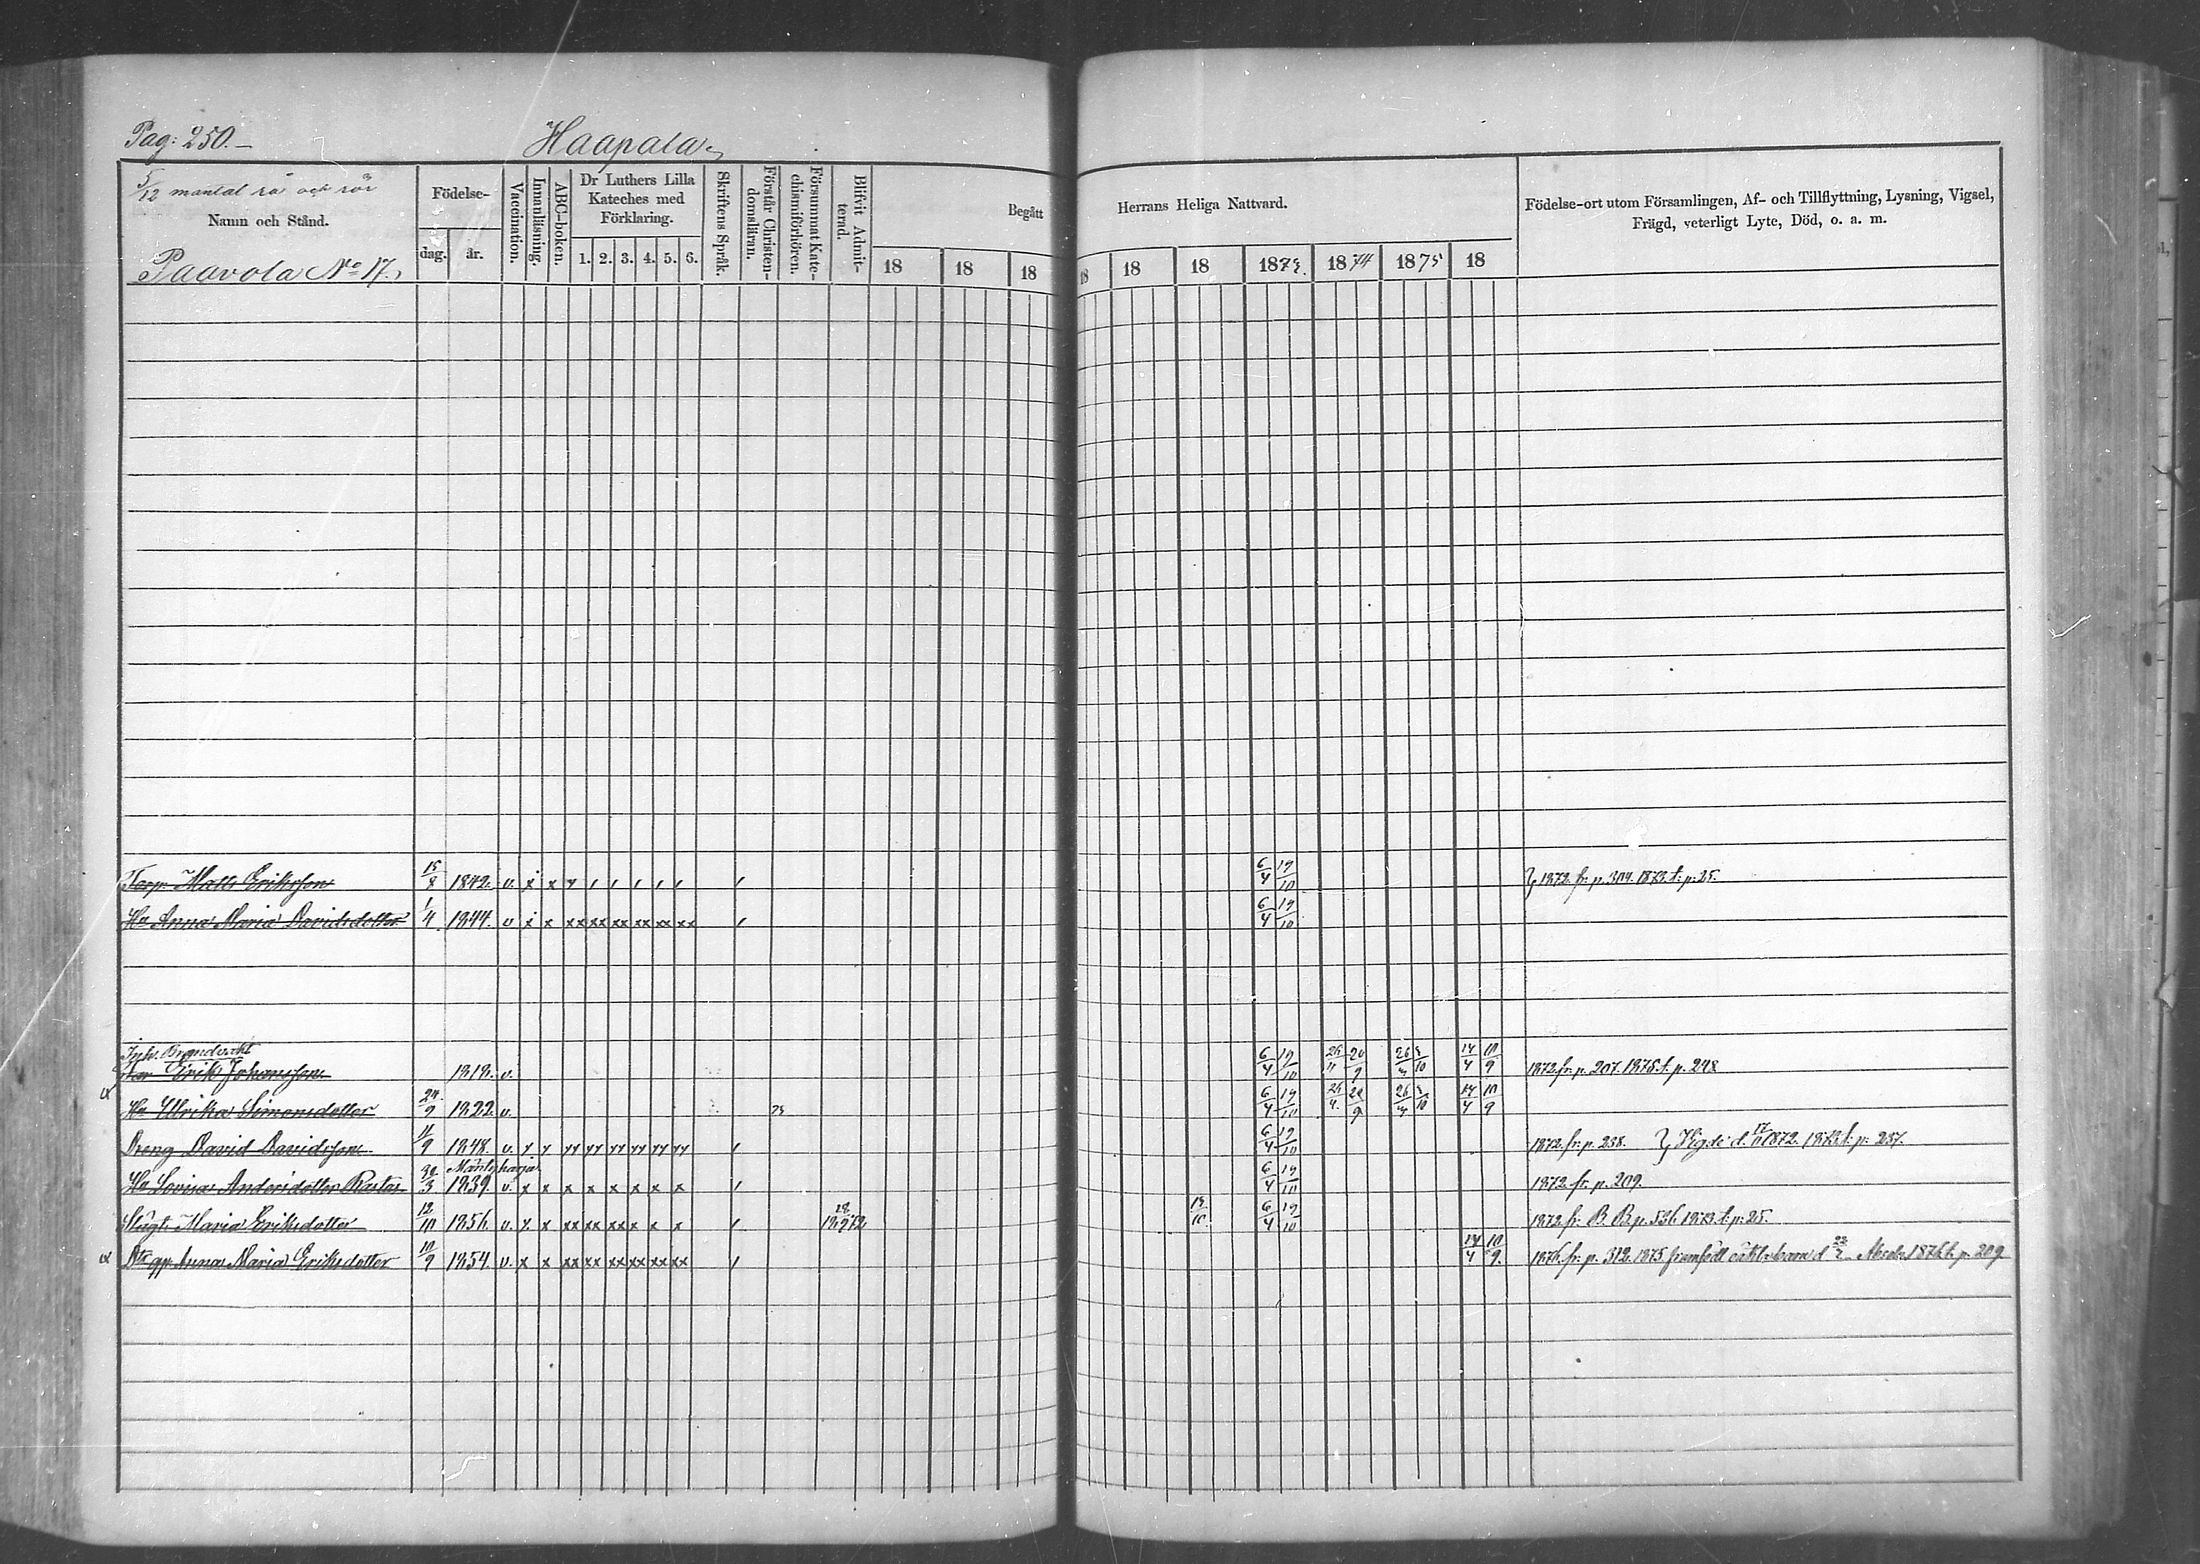 Pag: 250.
Haapala
5/12 mantal rå och rör
Namn och Stånd.
Paavola No 17.
Födelse-
dag. år.
Vaccination.
Innanläsning.
ABC-boken.
Dr Luthers Lilla Kateches med Förklaring.
1. 2. 3. 4. 5. 6.
Skriftens Språk.
Förstår Christendomsläran.
Försummat Katechismiförhören.
Blifvit Admitterad.
Begått Herrans Heliga Nattvard.
18 18 18 18 18 18 1873. 1874 1875 18
Födelse-ort utom Församlingen, Af- och Tillflyttning, Lysning, Vigsel,
Frägd, veterligt Lyte, Död, o. a. m.
Torp. Matts Eriksson 15/8 1842. v. 6/4 19/10 1872 fr. p. 304. 1873 t. p. 25.
Hu Anna Maria Davidsdotter 1/4 1844. v 6/4 19/10
Inh. Brandvakt
Erik Johansson 1818. v. 6/4 19/10 14/4 10/9 1872 fr. p. 207. 1876 t. p. 248
Hu Ulrika Simonsdotter 24/9 1822. v. 6/4 19/10 14/4 10/9
Dreng David Davidsson 11/9 1848. v. 6/4 19/10 1872 fr. p. 258. Vigde d. 17/11 1872. 1873 t. p. 257.
Mäntyharju
Hu Lovisa Andersdotter Rastas 30/3 1839. v. 6/4 19/10 1872 fr. p. 209.
Maria Eriksdotter 12/10 1856. v. 6/4 19/10 1872 fr. B. B. p. 526 1873 t. p. 25.
Anna Maria Eriksdotter 10/9 1854. v. 14/4 10/9. 1876 fr. p. 312. 1875 framfödt oäkta barn d 22/2 1876 t. p. 209